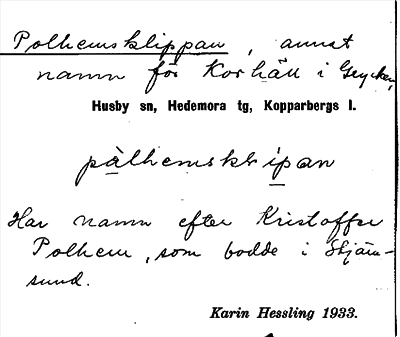 Polhemsklippan, annat
namn för Korhäll i Grycken,
Husby sn, Hedemora tg, Kopparbergs l.
pålhemsklipan
Har namn efter Kristoffer
Polhem, som bodde i Stjärn-
sund.
Karin Hessling 1933.